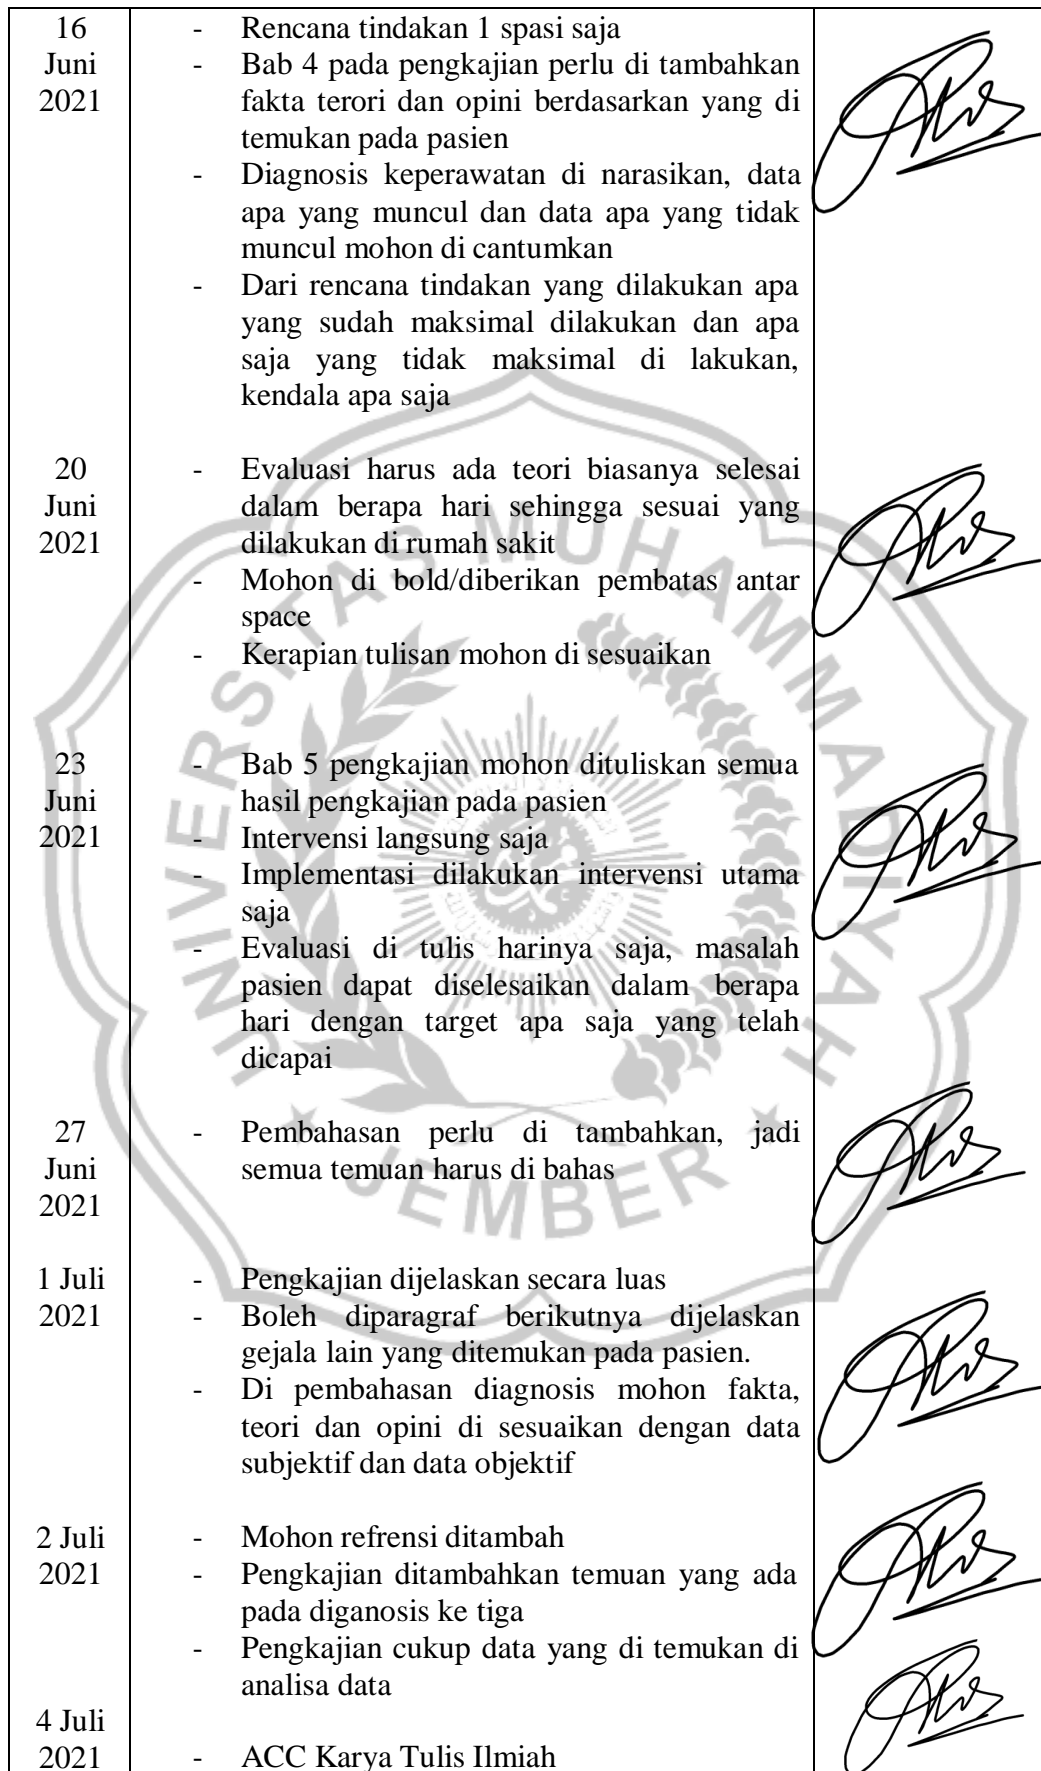 16 - Rencana tindakan 1 spasi saja
Juni - Bab 4 pada pengkajian perlu di tambahkan
2021 fakta terori dan opini berdasarkan yang di
temukan pada pasien
- Diagnosis keperawatan di narasikan, data
apa yang muncul dan data apa yang tidak
muncul mohon di cantumkan
- Dari rencana tindakan yang dilakukan apa
yang sudah maksimal dilakukan dan apa
saja yang tidak maksimal di lakukan,
kendala apa saja
20 - Evaluasi harus ada teori biasanya selesai
Juni dalam berapa hari sehingga sesuai yang
2021 dilakukan di rumah sakit
- Mohon di bold/diberikan pembatas antar
space
- Kerapian tulisan mohon di sesuaikan
23 - Bab 5 pengkajian mohon dituliskan semua
Juni hasil pengkajian pada pasien
2021 - Intervensi langsung saja
- Implementasi dilakukan intervensi utama
saja
- Evaluasi di tulis harinya saja, masalah
pasien dapat diselesaikan dalam berapa
hari dengan target apa saja yang telah
dicapai
27 - Pembahasan perlu di tambahkan, jadi
Juni semua temuan harus di bahas
2021
1 Juli - Pengkajian dijelaskan secara luas
2021 - Boleh diparagraf berikutnya dijelaskan
gejala lain yang ditemukan pada pasien.
- Di pembahasan diagnosis mohon fakta,
teori dan opini di sesuaikan dengan data
subjektif dan data objektif
2 Juli - Mohon refrensi ditambah
2021 - Pengkajian ditambahkan temuan yang ada
pada diganosis ke tiga
- Pengkajian cukup data yang di temukan di
analisa data
4 Juli
2021 - ACC Karya Tulis Ilmiah
UNIVERSITAS MUHAMMADIYAH
JEMBER